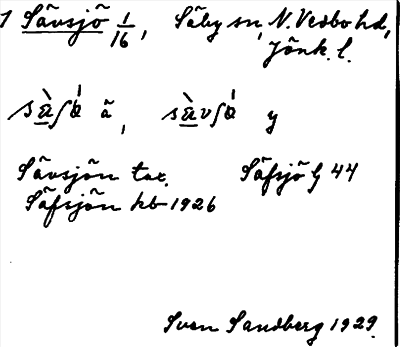 1 Sävsjö 1/16, Säby sn, N. Vedbo hd,
Jönk. l.
ä, y
Sävsjön tax. Säfsjö G 44
Säfsjön kb 1926
Sven Sandberg 1929.